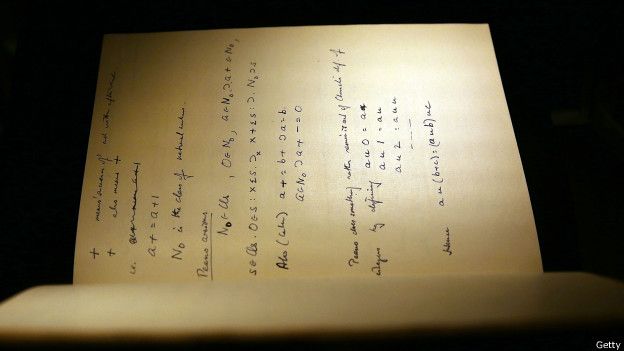 + means successor of
+ also means +
i.e.
a+ = a+1
N₀ is the class of natural numbers.
Peano axioms
N₀ ε Cls , 0 ε N₀ , a ε N₀ .⊃ a+ ε N₀,
s ε Cls . 0 ε s : x ε s ⊃ₓ x+ ε s :⊃. N₀ ⊃ s
Also (later) a+ = b+ ⊃ a = b.
a ε N₀ ⊃ a+ -= 0
Peano does something rather reminiscent of Church's def of
integers by defining a u 0 = a
a u 1 = au
a u 2 = auu
----
Hence a u (b+c) = (a u b) u c
Getty